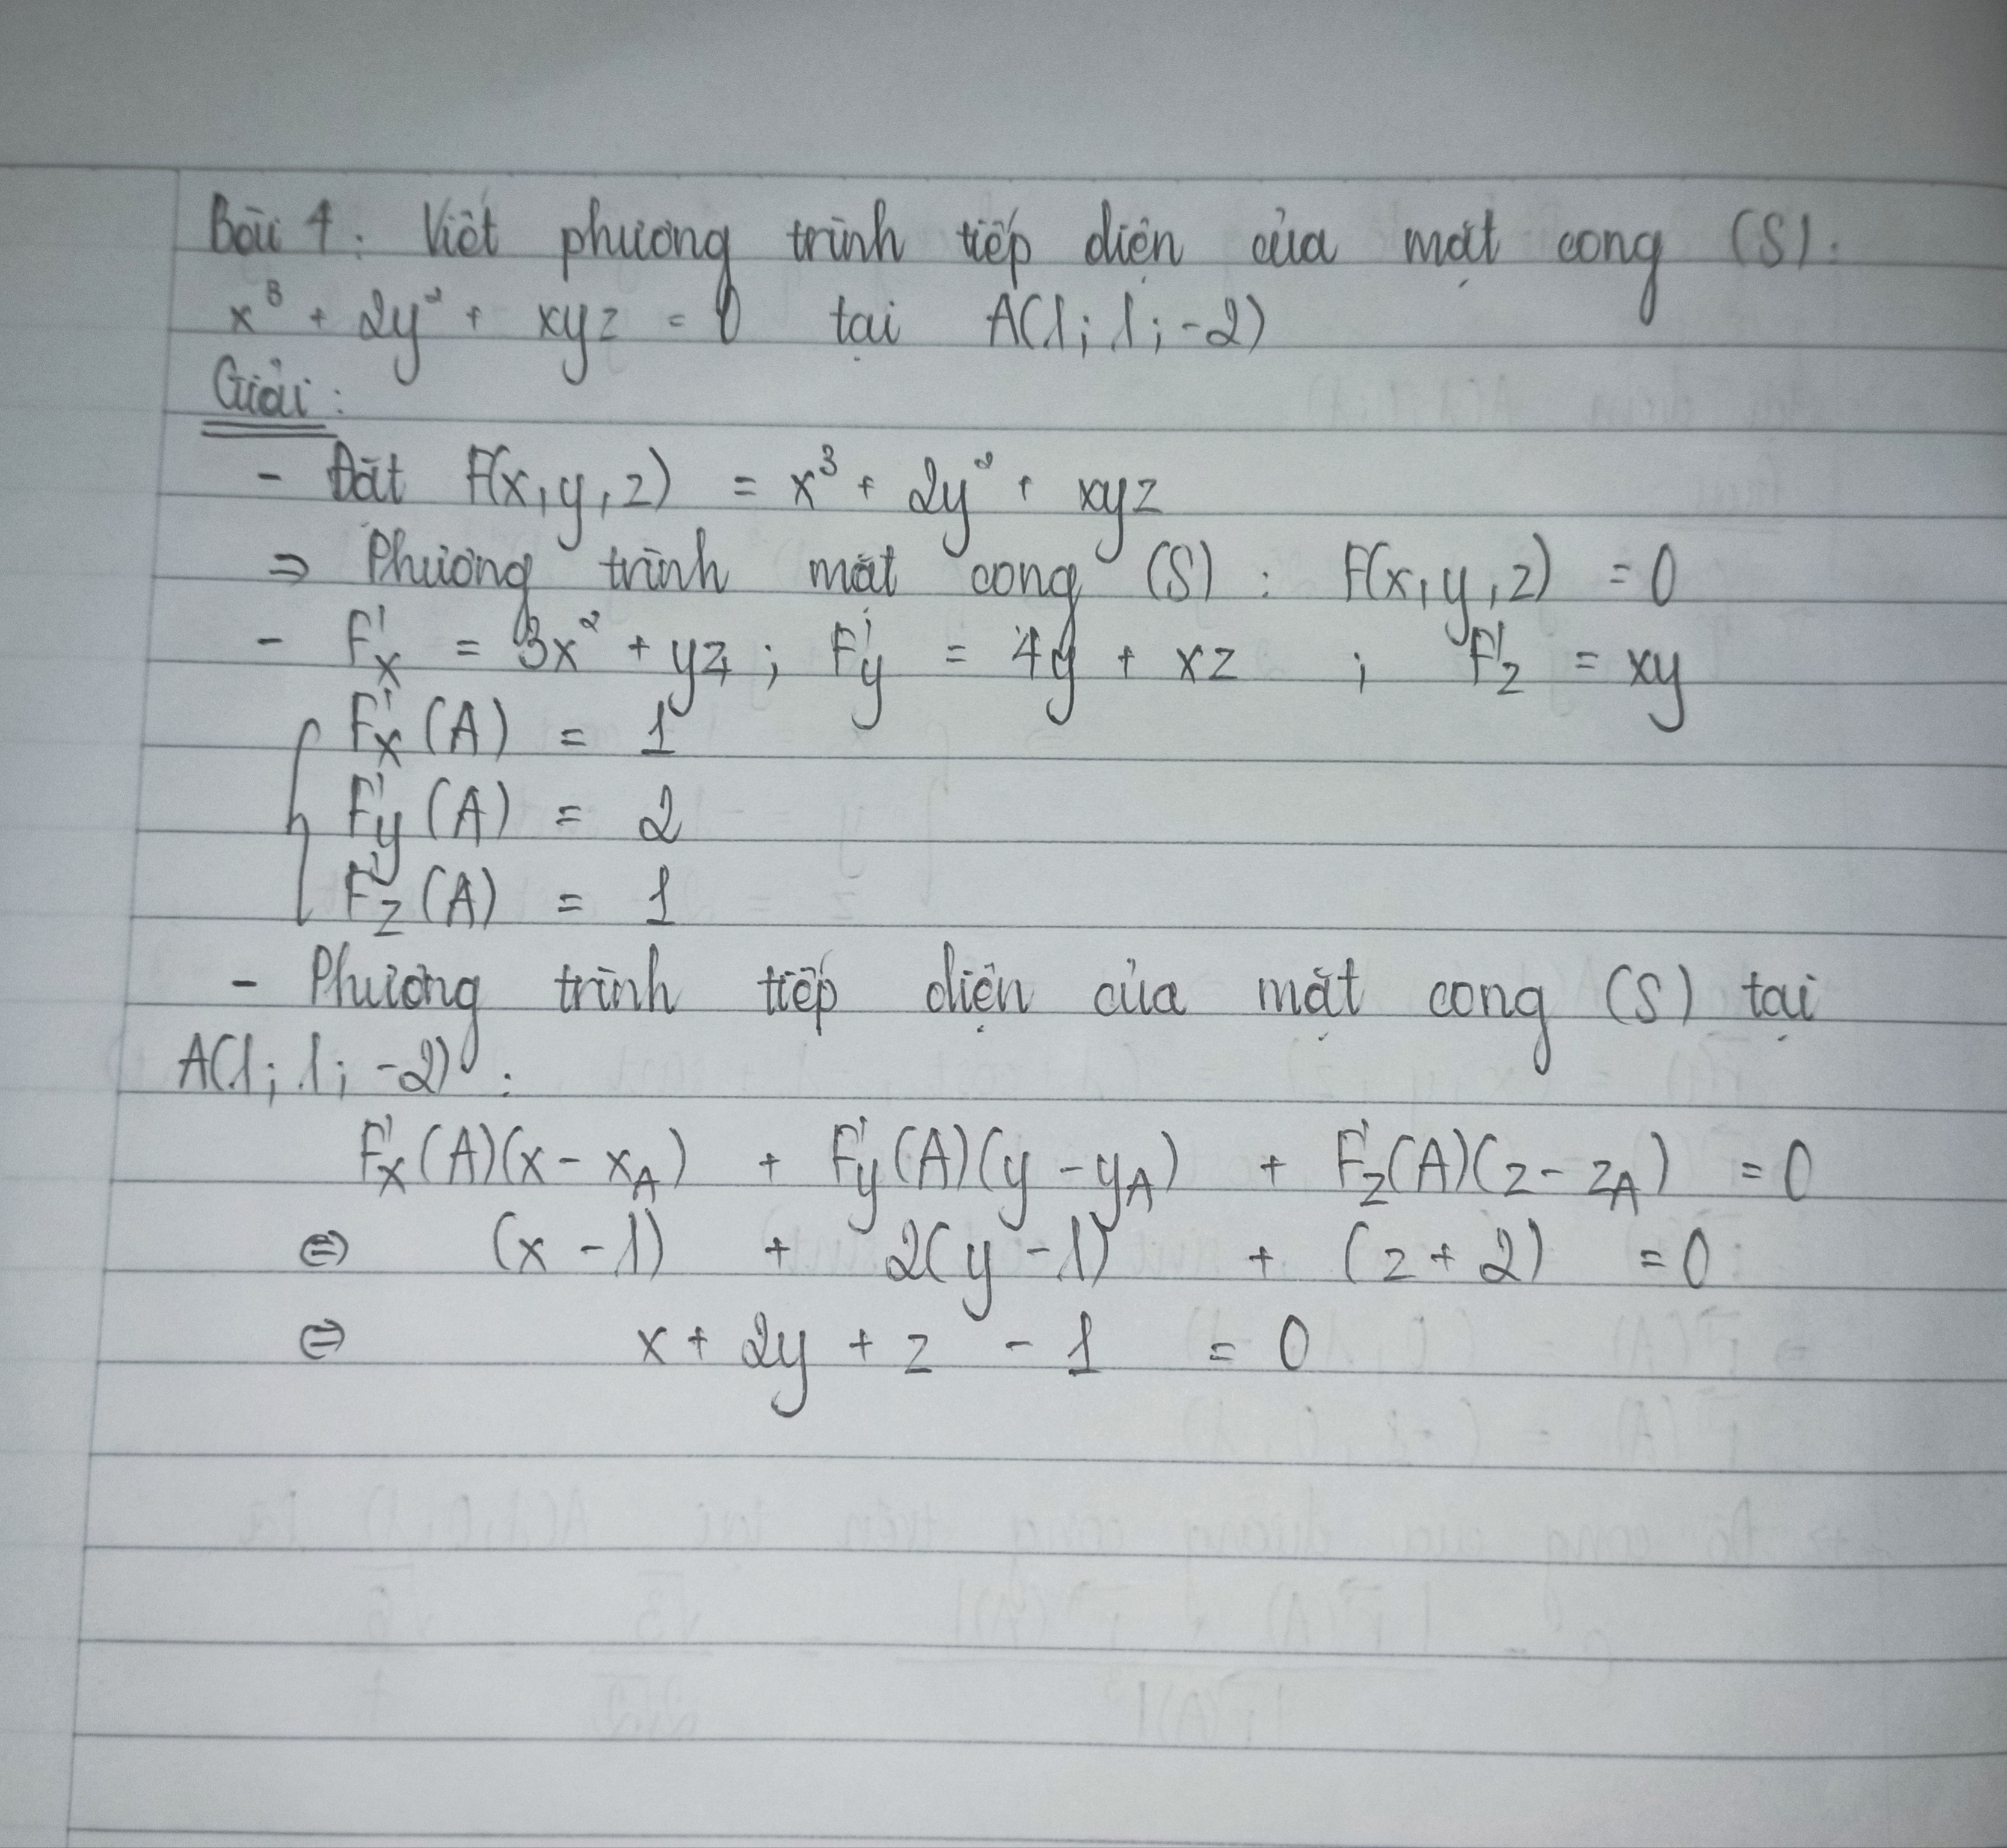 Bài 4: Viết phương trình tiếp diện của mặt cong (S):
x³ + 2y² + xyz = 0 tại A(1; 1; -2)
Giải:
- Đặt F(x, y, z) = x³ + 2y² + xyz
⇒ Phương trình mặt cong (S) : F(x, y, z) = 0
- F'x = 3x² + yz ; F'y = 4y + xz ; F'z = xy
F'x (A) = 1
F'y (A) = 2
F'z (A) = 1
- Phương trình tiếp diện của mặt cong (S) tại
A(1; 1; -2) :
F'x (A)(x - xA) + F'y (A)(y - yA) + F'z (A)(z - zA) = 0
⇔ (x - 1) + 2(y - 1) + (z + 2) = 0
⇔ x + 2y + z - 1 = 0